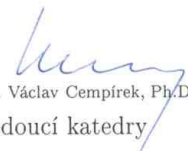 . Václav Cempírek, Ph.D
doucí katedry